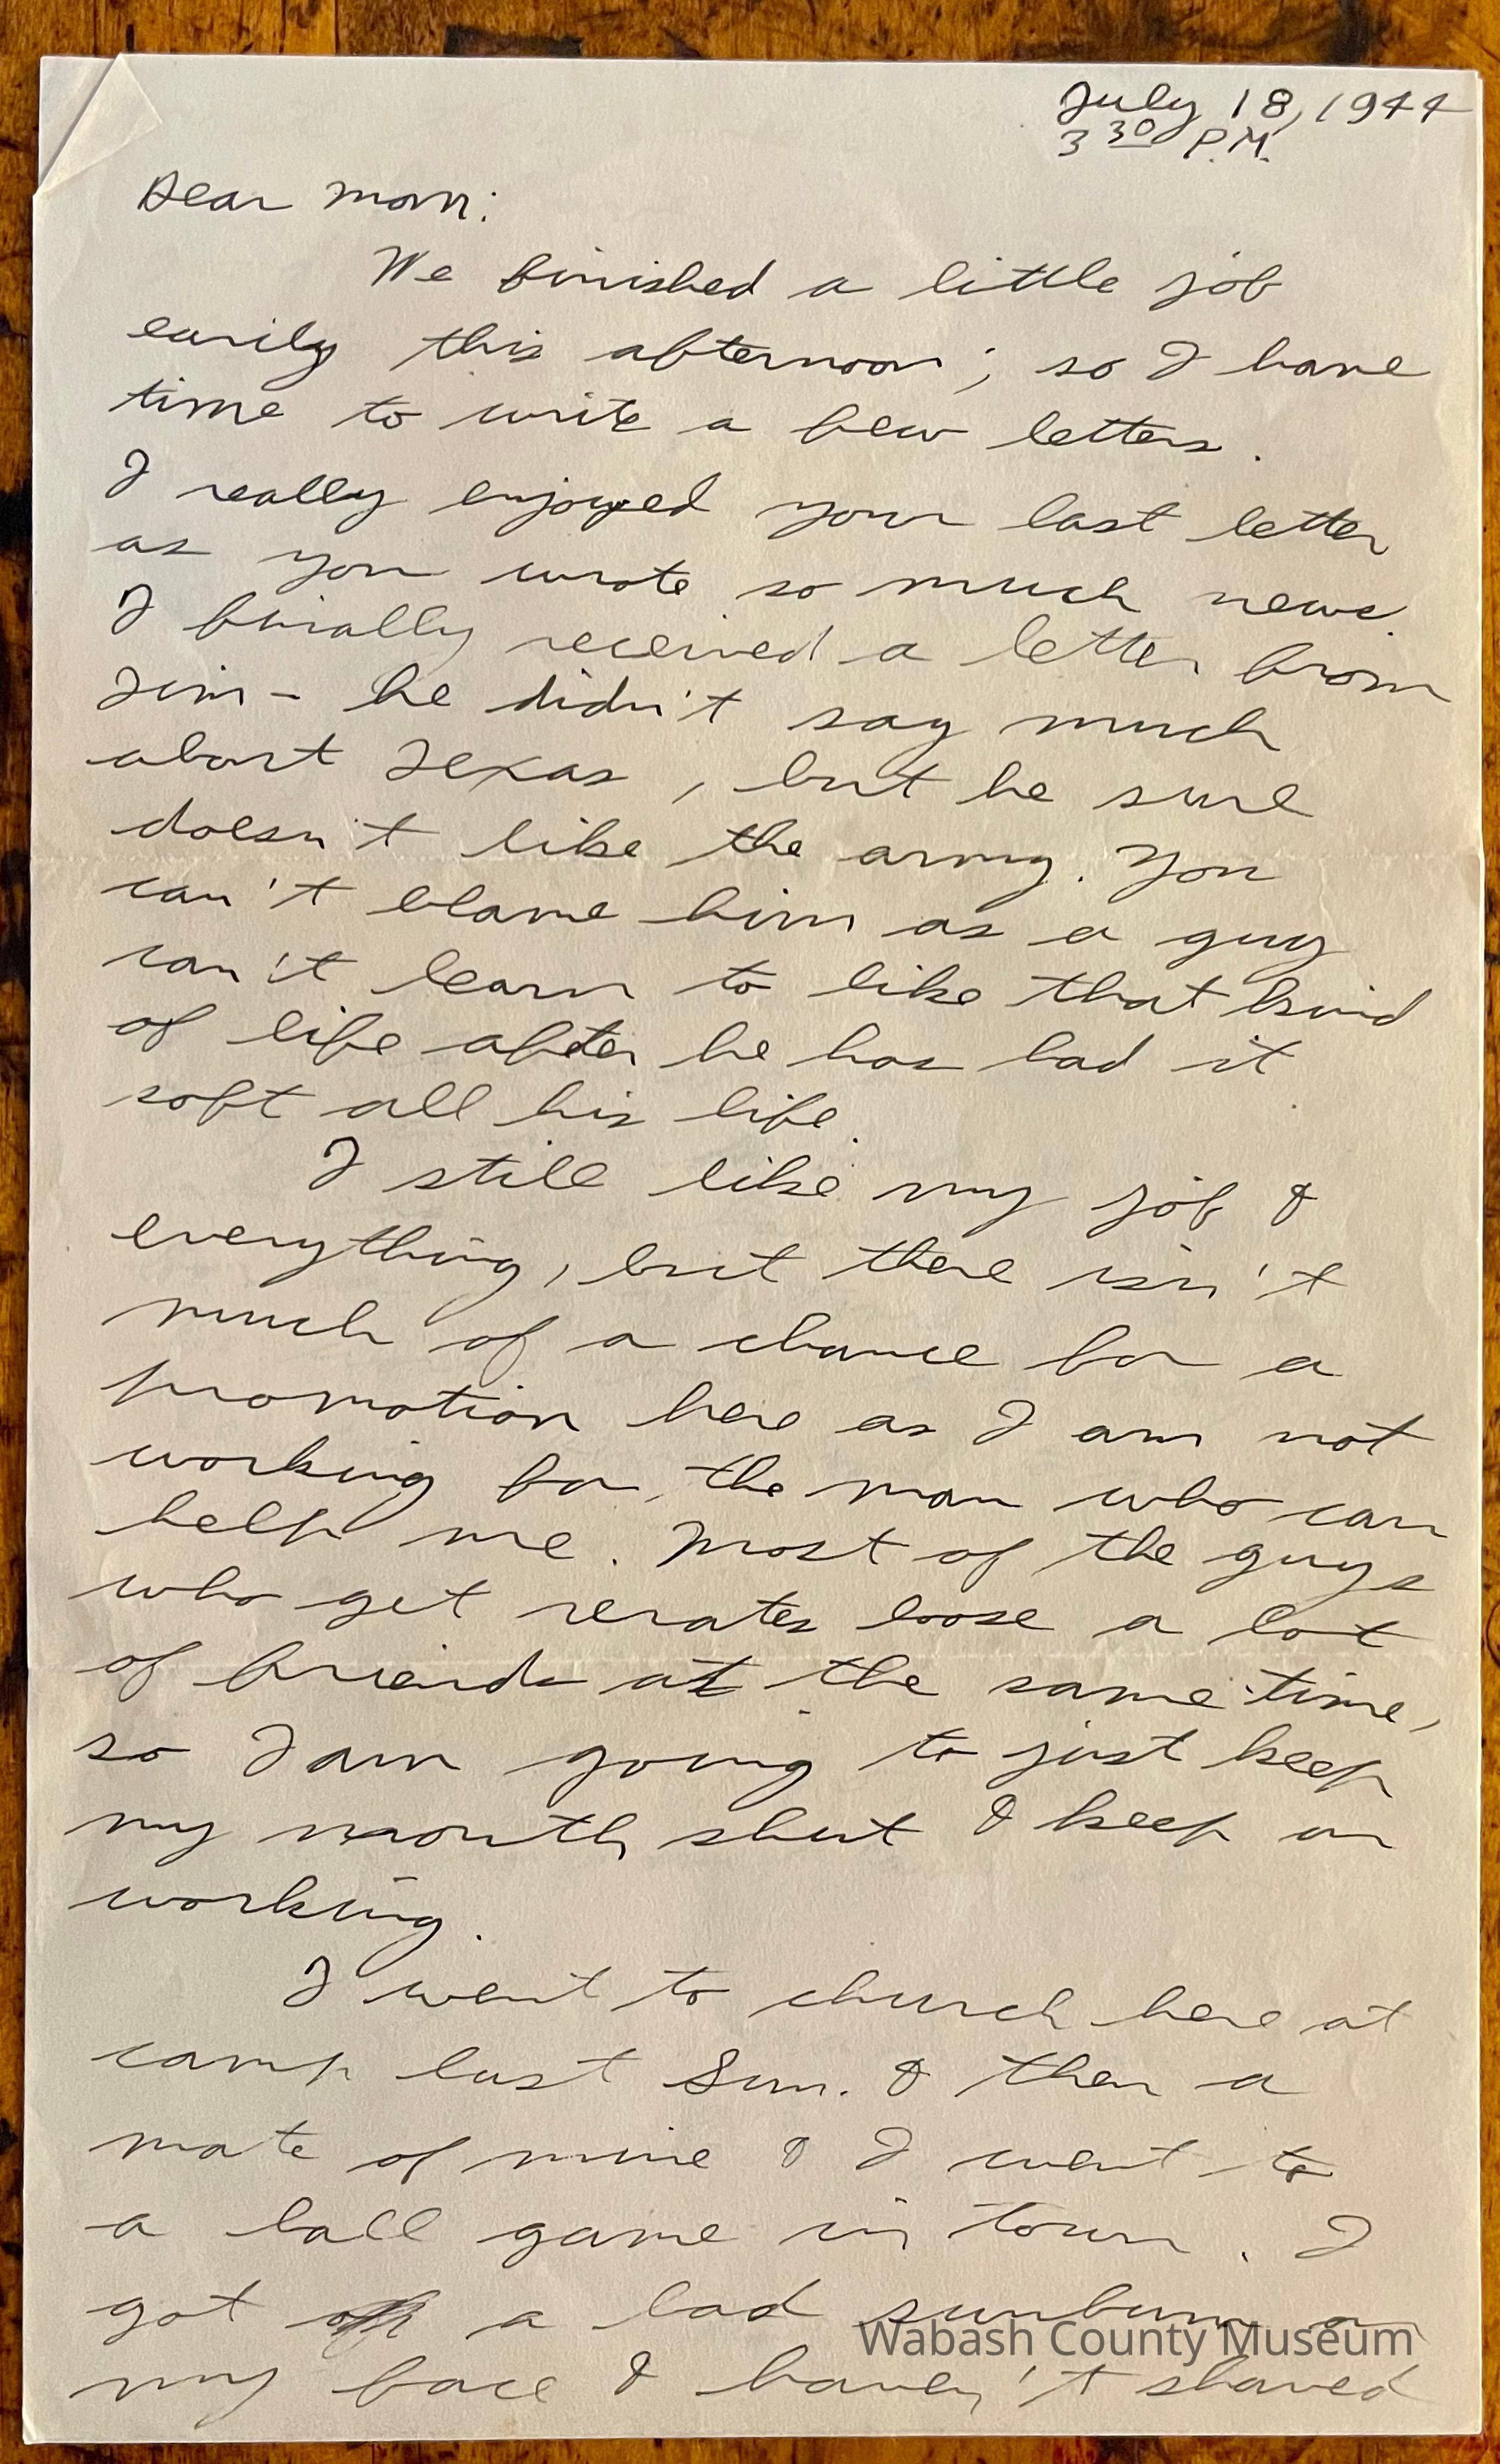 July 18, 1944
3 30 P.M.
Dear Mom:
We finished a little job
early this afternoon; so I have
time to write a few letters.
I really enjoyed your last letter
as you wrote so much news.
I finally received a letter from
Jim - he didn't say much
about Texas, but he sure
doesn't like the army. You
can't blame him as a guy
can't learn to like that kind
of life after he has had it
soft all his life.
I still like my job &
everything, but there isn't
much of a chance for a
promotion here as I am not
working for the man who can
help me. Most of the guys
who get rerates loose a lot
of friends at the same time,
so I am going to just keep
my mouth shut & keep on
working.
I went to church here at
camp last Sun. & then a
mate of mine & I went to
a ball game in town. I
got a bad sunburn on
Wabash County Museum
my face & haven't shaved